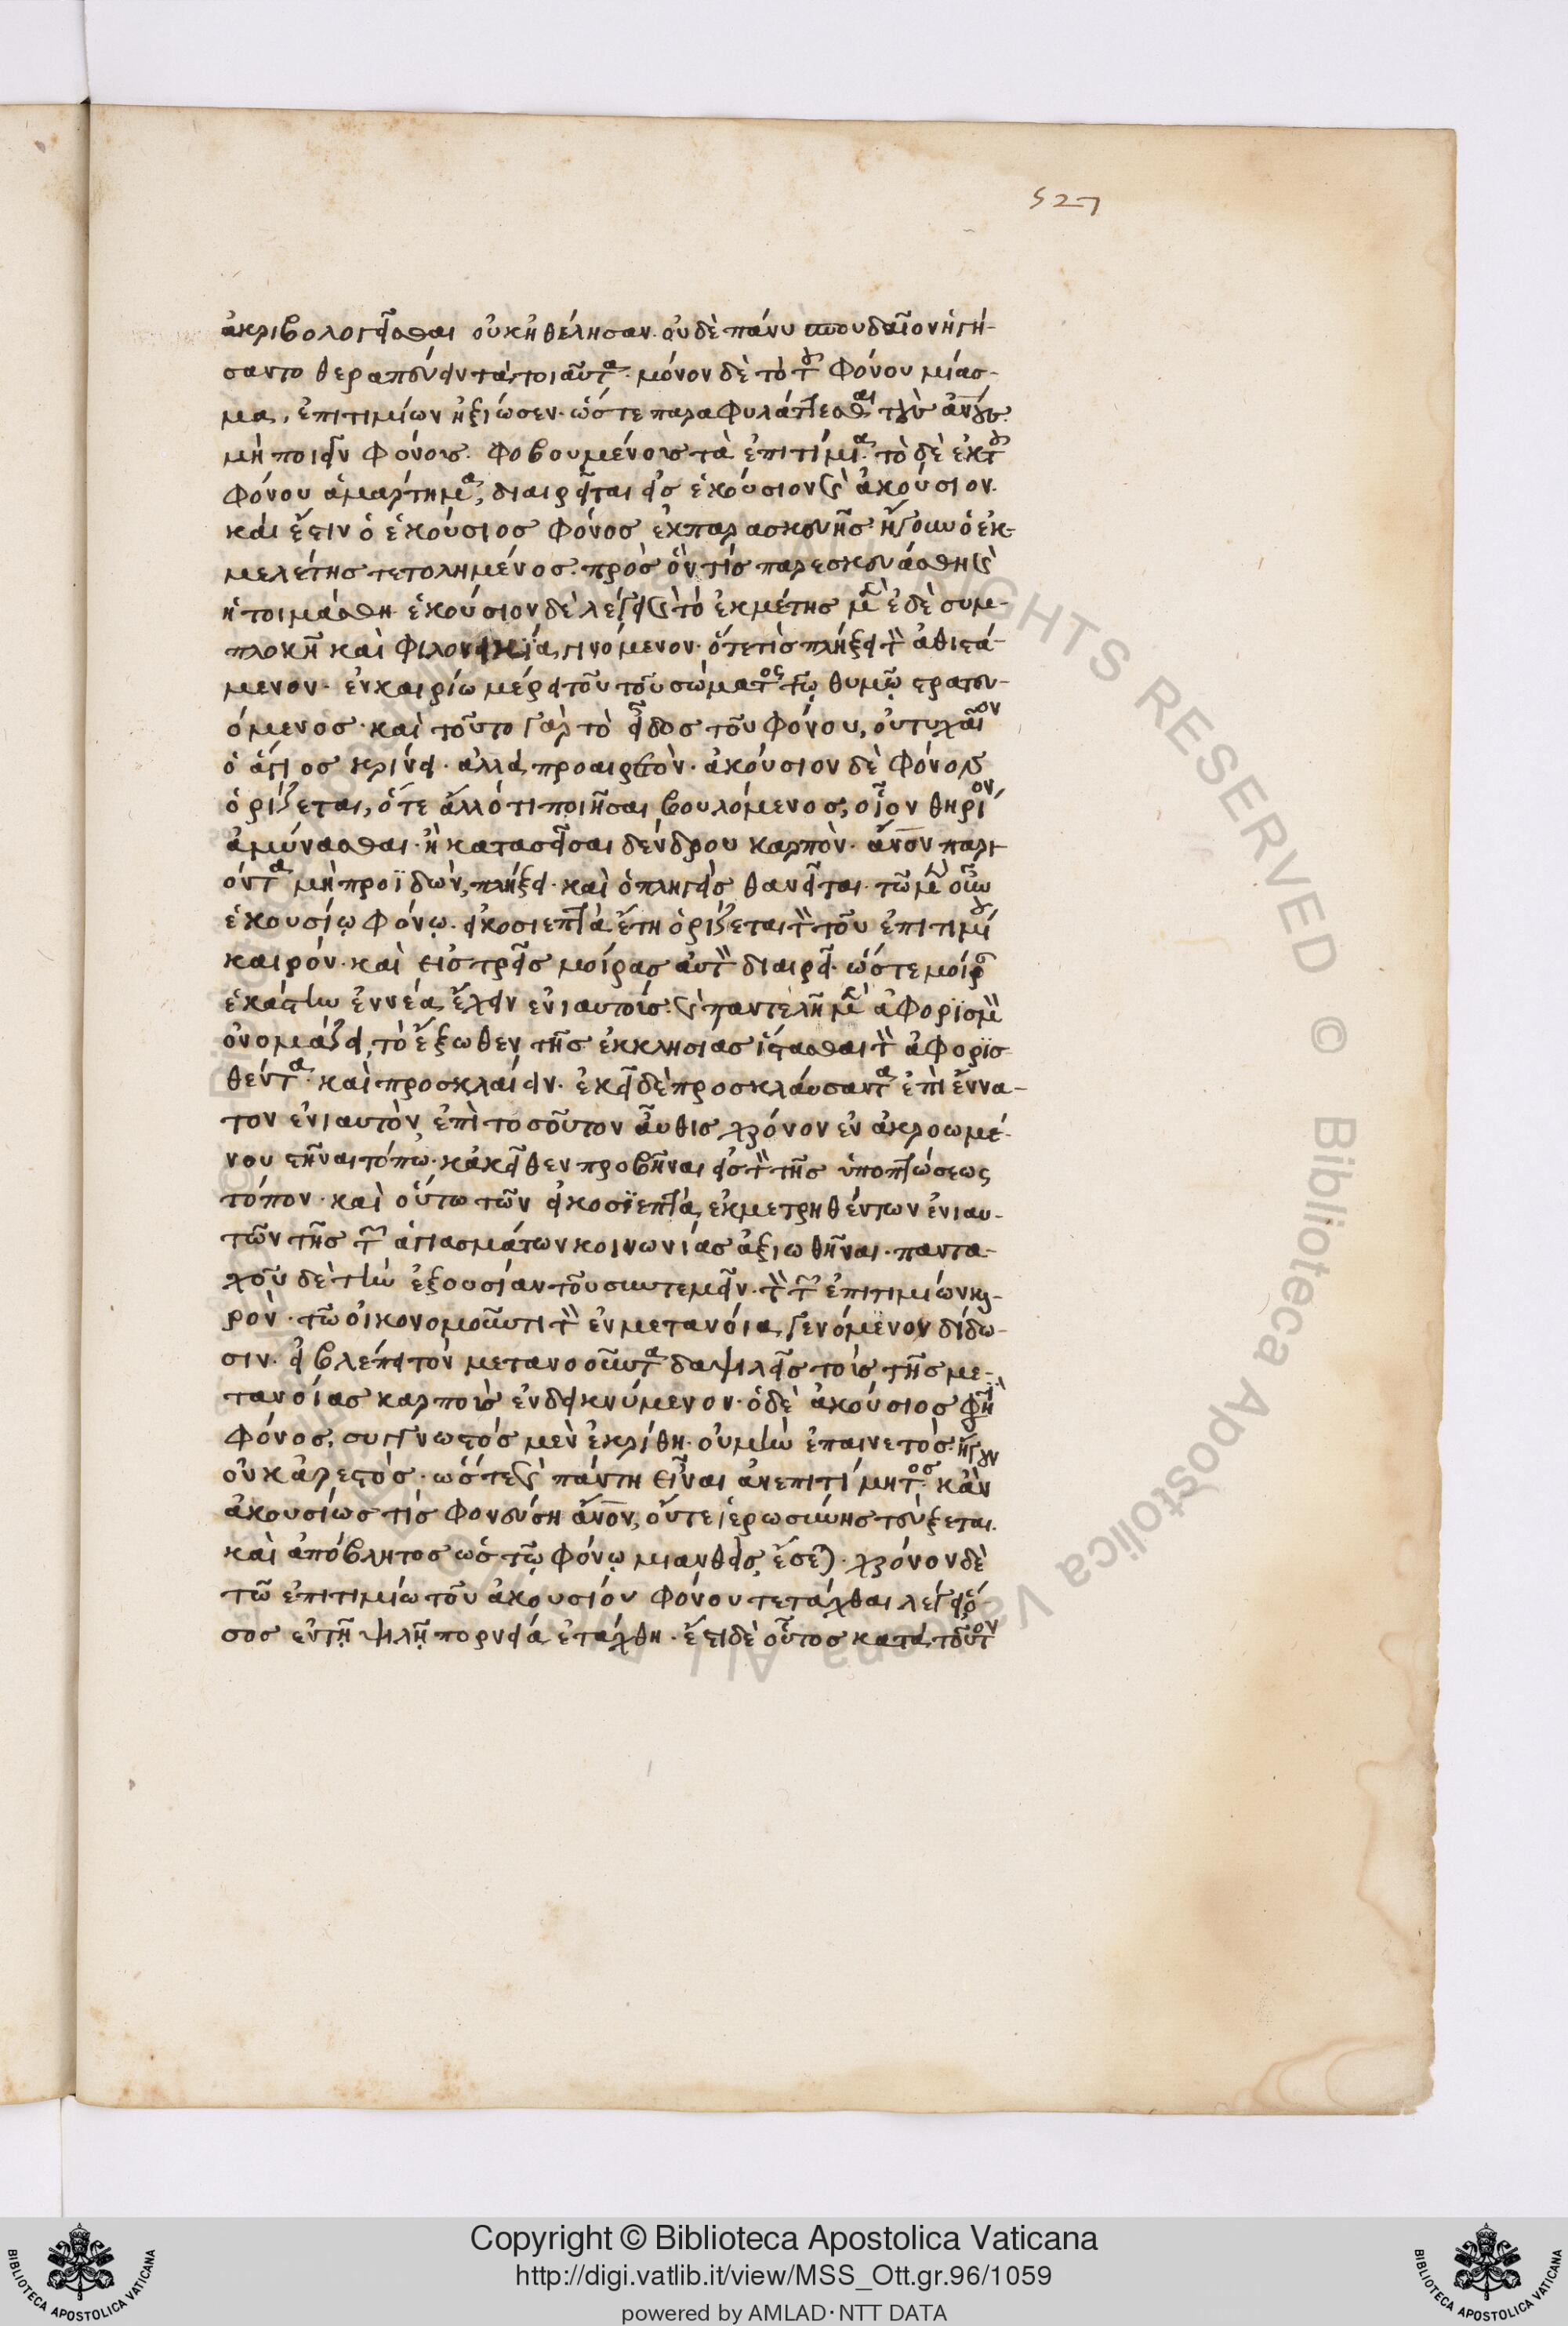 527
ἀκριβολογεῖσθαι οὐκ ἠθέλησαν. οὐδὲ πάνυ σπουδαῖον ἡγή-
σαντο θεραπεύειν τὰ τοιαῦτα. μόνον δὲ τὸ τοῦ φόνου μίασ-
μα, ἐπιτιμίων ἠξίωσεν. ὥστε παραφυλάττεσθαι τοὺς ἀνους
μὴ ποιεῖν φόνοις. φοβουμένοις τὰ ἐπιτίμια. τὸ δὲ ἐκ τοῦ
φόνου ἁμάρτημα, διαιρεῖται εἰς ἑκούσιον καὶ ἀκούσιον.
καὶ ἔστιν ὁ ἑκούσιος φόνος ἐκ παρασκευῆς. ἤγουν ὁ ἐκ
μελέτης τετολημένος. πρὸς ὅν τίς παρεσκευάσθη καὶ
ἡτοιμάσθη. ἑκούσιον δὲ λέγει καὶ τὸ ἐκ μέτης μὲν ἐ δὲ συμ-
πλοκῆ καὶ φιλονεικία, γινόμενον. ὅτε τὶς πλήξει τὸν ἀθιστά-
μενον. ἐν καιρίω μέρει τοῦ τοῦ σώματος τῷ θυμῷ στρατευ-
όμενος. καὶ τοῦτο γὰρ τὸ εἶδος τοῦ φόνου, οὐ τυχαῖον
ὁ ἅγιος κρίνει. ἀλλὰ προαιρετὸν. ἀκούσιον δὲ φόνον
ὁρίζεται, ὅτε ἄλλό τι ποιῆσαι βουλόμενος, οἷον θηρίον
ἀμύνασθαι. ἢ κατασεῖσαι δένδρου καρπὸν. ἄνον παρι-
όντα μὴ προϊδὼν, πλήξει. καὶ ὁ πληγεὶς θανεῖται. τῶ μὲν οὖν
ἑκουσίῳ φόνῳ. εἰκοσιεπτὰ ἔτη ὁρίζεται τὸν τοῦ ἐπιτιμίου
καιρόν. καὶ εἰς τρεῖς μοίρας αὐτὸν διαιρεῖ. ὥστε μοίρα
ἑκάστην ἐννέα ἔχειν ἐνιαυτοὺς. καὶ παντελῆ μὲν ἀφορισμὸν
ὀνομάζει, τὸ ἔξωθεν τῆς ἐκκλησίας ἵστασθαι τὸν ἀφορισ
θέντα. καὶ προσκλαίειν. ἐκεῖ δὲ προσκλαύσαντα ἐπὶ ἔννα-
τον ἐνιαυτὸν, ἐπὶ τοσοῦτον αὖθις χρόνον ἐν ἀκροωμέ-
νου στῆναι τόπῳ. κἀκεῖθεν προβῆναι εἰς τὸν τῆς ὑποπτώσεως
τόπον. καὶ οὕτω τῶν εἰκοσϊεπτὰ, ἐκμετρηθέντων ἐνιαυ-
τῶν τῆς τῶν ἁγιασμάτων κοινωνίας ἀξιωθῆναι. παντα-
χοῦ δὲ τὴν ἐξουσίαν τοῦ συντεμεῖν. τὸν τῶν ἐπιτιμίων και-
ρὸν. τῶ οἰκονομοῦντι τὸν ἐν μετανοία, γενόμενον δίδω-
σιν. εἰ βλέπει τὸν μετανοοῦντα δαψιλεῖς τοὺς τῆς με-
τανοίας καρποὺς ἐνδεικνύμενον. ὁ δὲ ἀκούσιος φησὶ
φόνος, συγγνωστὸς μὲν ἐκρίθη. οὐ μὴν ἐπαινετὸς. ἤγουν
οὐκ ἀρεστὸς. ὥστε καὶ πάντη εἶναι ἀνεπιτίμητος. κἂν
ἀκουσίως τὶς φονεύση ἄνον, οὔτε ἱερωσύνης τεύξεται.
καὶ ἀπόβλητος ὡς τῷ φόνῳ μιανθεὶς, ἔσεται. χρόνον δὲ
τῶ ἐπιτιμίω τοῦ ἀκουσίου φόνου τετάχθαι λέγει, ὅ-
σος ἐν τῇ ψιλῇ πορνεία ἐτάχθη. ἔτι δὲ οὗτος κατὰ τοῦτον
Copyright © Biblioteca Apostolica Vaticana
http://digi.vatlib.it/view/MSS_Ott.gr.96/1059
powered by AMLAD·NTT DATA